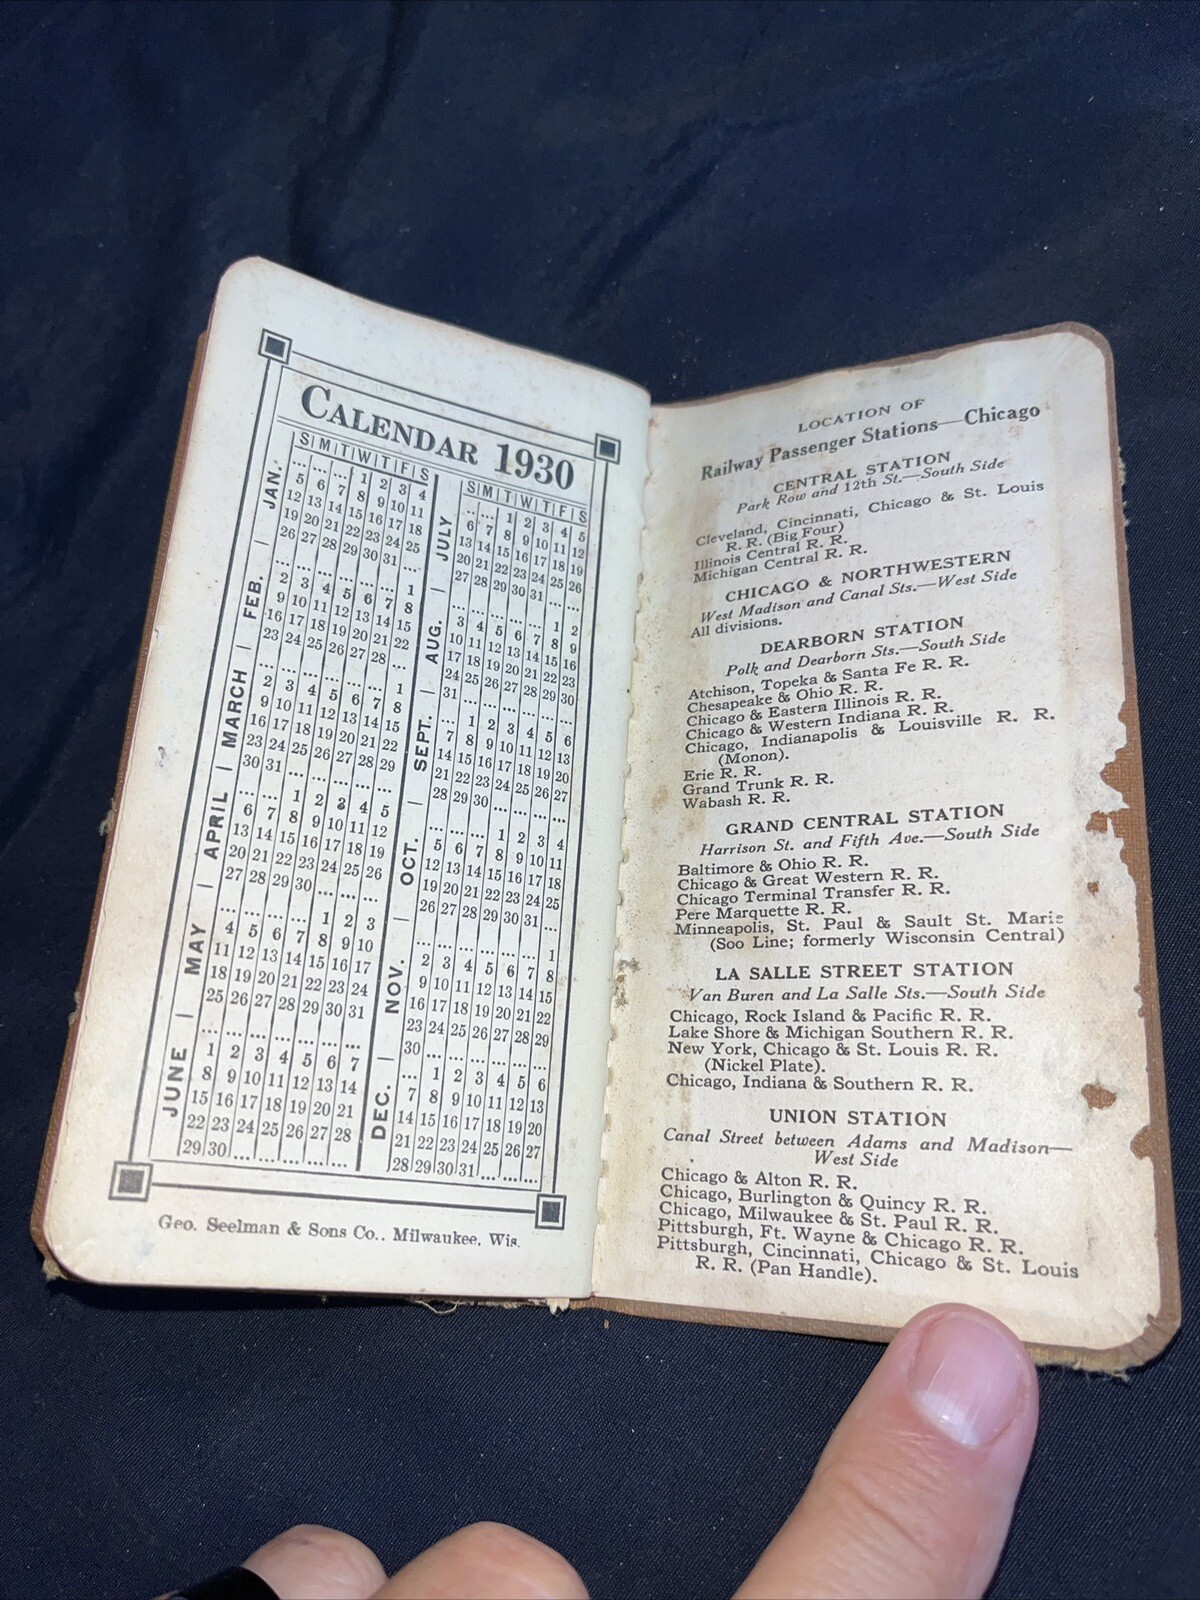 CALENDAR 1930
S M T W T F S
JAN.
... ... ... 1 2 3 4
5 6 7 8 9 10 11
12 13 14 15 16 17 18
19 20 21 22 23 24 25
26 27 28 29 30 31 ...
FEB.
... ... ... ... ... ... 1
2 3 4 5 6 7 8
9 10 11 12 13 14 15
16 17 18 19 20 21 22
23 24 25 26 27 28 ...
MARCH
... ... ... ... ... ... 1
2 3 4 5 6 7 8
9 10 11 12 13 14 15
16 17 18 19 20 21 22
23 24 25 26 27 28 29
30 31 ... ... ... ... ...
APRIL
... ... 1 2 3 4 5
6 7 8 9 10 11 12
13 14 15 16 17 18 19
20 21 22 23 24 25 26
27 28 29 30 ... ... ...
MAY
... ... ... ... 1 2 3
4 5 6 7 8 9 10
11 12 13 14 15 16 17
18 19 20 21 22 23 24
25 26 27 28 29 30 31
... ... ... ... ... ... ...
JUNE
1 2 3 4 5 6 7
8 9 10 11 12 13 14
15 16 17 18 19 20 21
22 23 24 25 26 27 28
29 30 ... ... ... ... ...
S M T W T F S
JULY
... ... 1 2 3 4 5
6 7 8 9 10 11 12
13 14 15 16 17 18 19
20 21 22 23 24 25 26
27 28 29 30 31 ... ...
AUG.
... ... ... ... ... 1 2
3 4 5 6 7 8 9
10 11 12 13 14 15 16
17 18 19 20 21 22 23
24 25 26 27 28 29 30
31 ... ... ... ... ... ...
SEPT.
... 1 2 3 4 5 6
7 8 9 10 11 12 13
14 15 16 17 18 19 20
21 22 23 24 25 26 27
28 29 30 ... ... ... ...
OCT.
... ... ... 1 2 3 4
5 6 7 8 9 10 11
12 13 14 15 16 17 18
19 20 21 22 23 24 25
26 27 28 29 30 31 ...
NOV.
... ... ... ... ... ... 1
2 3 4 5 6 7 8
9 10 11 12 13 14 15
16 17 18 19 20 21 22
23 24 25 26 27 28 29
30 ... ... ... ... ... ...
DEC.
... 1 2 3 4 5 6
7 8 9 10 11 12 13
14 15 16 17 18 19 20
21 22 23 24 25 26 27
28 29 30 31 ... ... ...
Geo. Seelman & Sons Co., Milwaukee, Wis.
LOCATION OF
Railway Passenger Stations—Chicago
CENTRAL STATION
Park Row and 12th St.—South Side
Cleveland, Cincinnati, Chicago & St. Louis
R. R. (Big Four)
Illinois Central R. R.
Michigan Central R. R.
CHICAGO & NORTHWESTERN
West Madison and Canal Sts.—West Side
All divisions.
DEARBORN STATION
Polk and Dearborn Sts.—South Side
Atchison, Topeka & Santa Fe R. R.
Chesapeake & Ohio R. R.
Chicago & Eastern Illinois R. R.
Chicago & Western Indiana R. R.
Chicago, Indianapolis & Louisville R. R.
(Monon).
Erie R. R.
Grand Trunk R. R.
Wabash R. R.
GRAND CENTRAL STATION
Harrison St. and Fifth Ave.—South Side
Baltimore & Ohio R. R.
Chicago & Great Western R. R.
Chicago Terminal Transfer R. R.
Pere Marquette R. R.
Minneapolis, St. Paul & Sault St. Marie
(Soo Line; formerly Wisconsin Central)
LA SALLE STREET STATION
Van Buren and La Salle Sts.—South Side
Chicago, Rock Island & Pacific R. R.
Lake Shore & Michigan Southern R. R.
New York, Chicago & St. Louis R. R.
(Nickel Plate).
Chicago, Indiana & Southern R. R.
UNION STATION
Canal Street between Adams and Madison—
West Side
Chicago & Alton R. R.
Chicago, Burlington & Quincy R. R.
Chicago, Milwaukee & St. Paul R. R.
Pittsburgh, Ft. Wayne & Chicago R. R.
Pittsburgh, Cincinnati, Chicago & St. Louis
R. R. (Pan Handle).